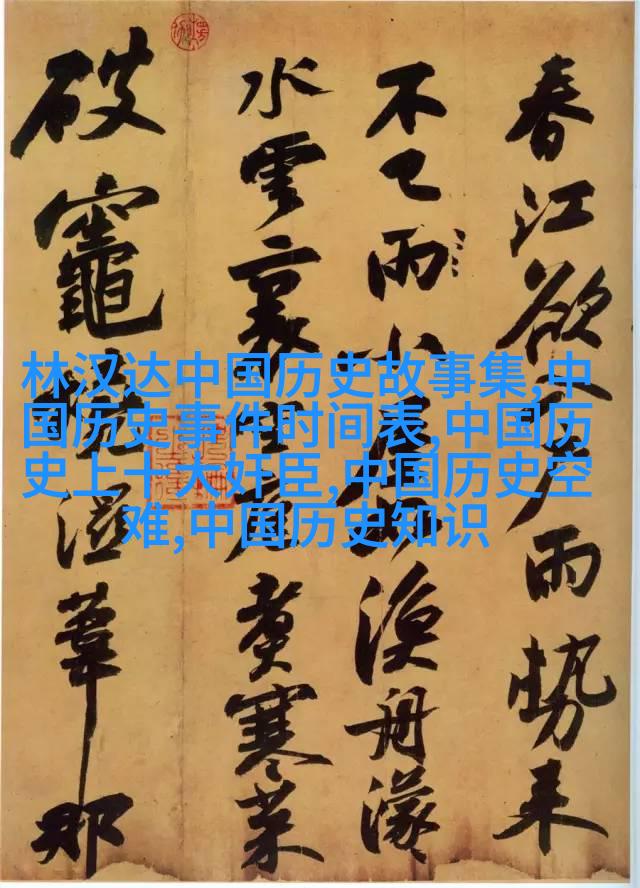 春江欲入戶雨勢来
不已雨小屋如漁舟濛
水雲裏空庖煮寒菜
破竈燒濕葦那
林汉达中国历史故事集,中
国历史事件时间表,中国历
史上十大奸臣,中国历史空
难,中国历史知识